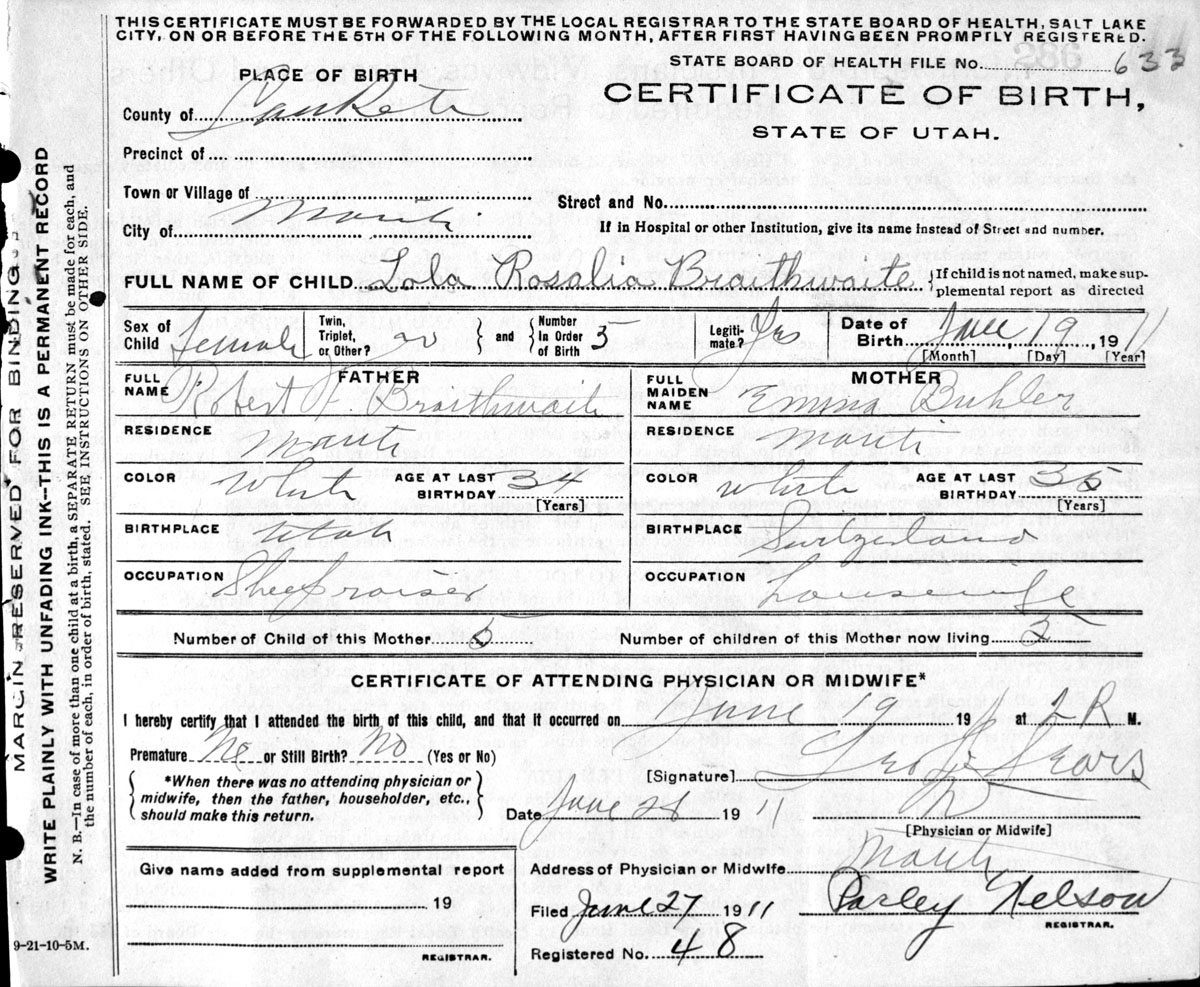 THIS CERTIFICATE MUST BE FORWARDED BY THE LOCAL REGISTRAR TO THE STATE BOARD OF HEALTH, SALT LAKE
CITY, ON OR BEFORE THE 5TH OF THE FOLLOWING MONTH, AFTER FIRST HAVING BEEN PROMPTLY REGISTERED.
STATE BOARD OF HEALTH FILE No. 633
PLACE OF BIRTH
CERTIFICATE OF BIRTH,
STATE OF UTAH.
County of Sanpete
Precinct of
Town or Village of
Street and No.
City of Manti
If in Hospital or other Institution, give its name instead of Street and number.
FULL NAME OF CHILD Lola Rosalia Braithwaite
If child is not named, make sup-
plemental report as directed
Sex of Child female Twin, Triplet, or Other? no and Number In Order of Birth 5 Legiti- mate? Yes Date of Birth June 19 1911
[Month] [Day] [Year]
FATHER
MOTHER
FULL NAME Robert Braithwaite
FULL MAIDEN NAME Emma Buhler
RESIDENCE Manti
RESIDENCE Manti
COLOR White AGE AT LAST BIRTHDAY 34 [Years]
COLOR White AGE AT LAST BIRTHDAY 35 [Years]
BIRTHPLACE Utah
BIRTHPLACE Switzerland
OCCUPATION Sheep raiser
OCCUPATION Housewife
Number of Child of this Mother 5 Number of children of this Mother now living 5
CERTIFICATE OF ATTENDING PHYSICIAN OR MIDWIFE*
I hereby certify that I attended the birth of this child, and that it occurred on June 19 19 at 2 P M.
Premature No or Still Birth? No (Yes or No)
*When there was no attending physician or
midwife, then the father, householder, etc.,
should make this return.
[Signature] Sears
Date June 28 1911
[Physician or Midwife]
Give name added from supplemental report
19
REGISTRAR.
Address of Physician or Midwife Manti
Filed June 27 1911 Parley Nelson
REGISTRAR.
Registered No. 48
9-21-10-5M.
MARGIN RESERVED FOR BINDING
WRITE PLAINLY WITH UNFADING INK—THIS IS A PERMANENT RECORD
N. B.—In case of more than one child at a birth, a SEPARATE RETURN must be made for each, and
the number of each, in order of birth, stated. SEE INSTRUCTIONS ON OTHER SIDE.